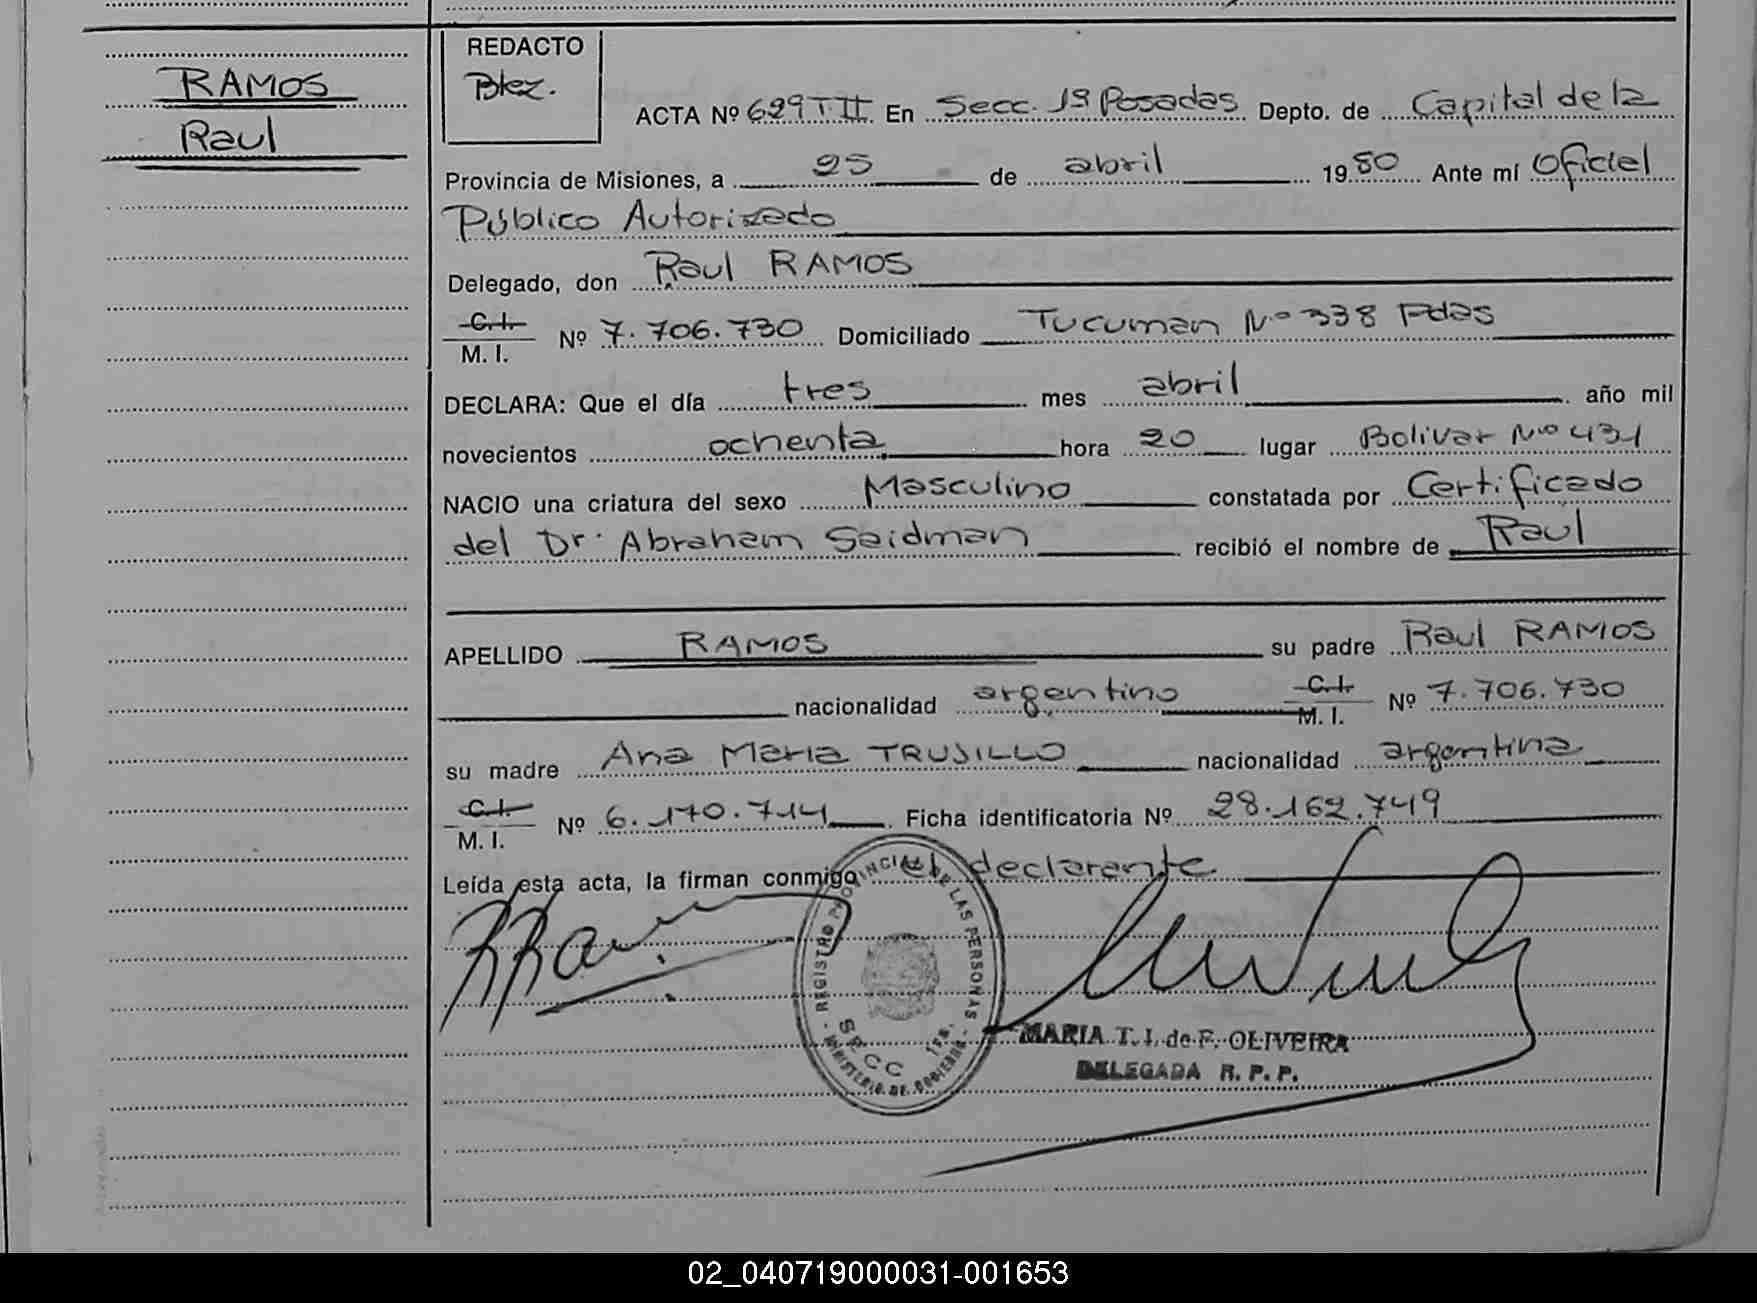 RAMOS
Raul
REDACTO
Blez.
ACTA Nº 629 T II En Secc. 1ª Posadas Depto. de Capital de la
Provincia de Misiones, a 25 de abril 1980 Ante mí Oficial
Público Autorizado
Delegado, don Raul RAMOS
C.I.
M. I. Nº 7.706.730 Domiciliado Tucuman Nº 338 Pdas
DECLARA: Que el día tres mes abril año mil
novecientos ochenta hora 20 lugar Bolivar Nº 431
NACIO una criatura del sexo Masculino constatada por Certificado
del Dr. Abraham Saidman recibió el nombre de Raul
APELLIDO RAMOS su padre Raul RAMOS
nacionalidad argentino C.I. M. I. Nº 7.706.730
su madre Ana Maria TRUJILLO nacionalidad argentina
C.I.
M. I. Nº 6.170.714 Ficha identificatoria Nº 28.162.749
Leída esta acta, la firman conmigo el declarante
REGISTRO PROVINCIAL DE LAS PERSONAS
SECC 1ra.
MINISTERIO DE GOBIERNO
MARIA T. I. de F. OLIVEIRA
DELEGADA R. P. P.
02_040719000031-001653